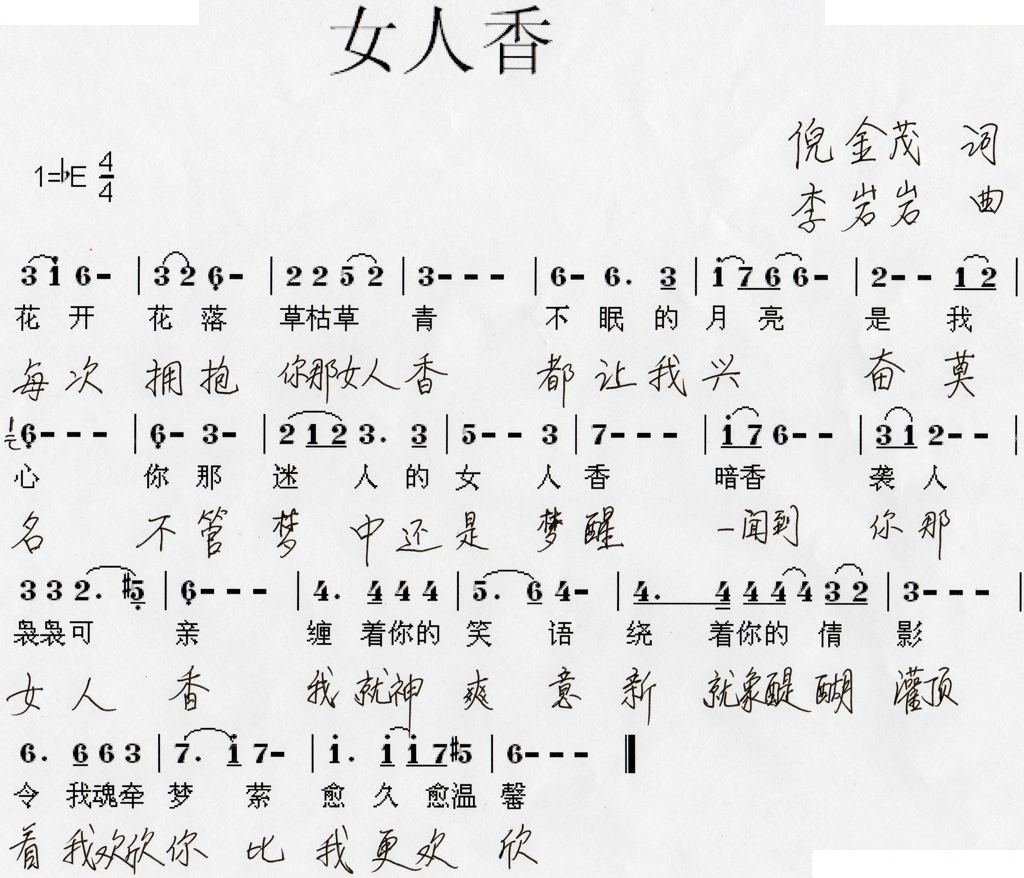 女人香
倪金茂 词
1=♭E 4/4
李岩岩 曲
3 i 6- | 3 2 6- | 2 2 5 2 | 3--- | 6- 6. 3 | i 7 6 6- | 2-- 1 2 |
花 开 花 落 草枯草 青 不 眠 的 月 亮 是 我
每次 拥抱 你那女人香 都让我兴 奋 莫
6--- | 6- 3- | 2 1 2 3. 3 | 5-- 3 | 7--- | i 7 6-- | 3 1 2-- |
心 你 那 迷 人 的 女 人 香 暗香 袭 人
名 不管梦 中还是 梦醒 一闻到 你那
3 3 2. #5 | 6--- | 4. 4 4 4 | 5. 6 4- | 4. 4 4 4 4 3 2 | 3--- |
袅袅可 亲 缠 着你的 笑 语 绕 着你的 倩 影
女人 香 我就神 爽 意 新 就象醍醐 灌顶
6. 6 6 3 | 7. i 7- | i. i i 7 #5 | 6---
令 我魂牵 梦 萦 愈 久 愈温 馨
着 我欢欣你 比 我更欢 欣